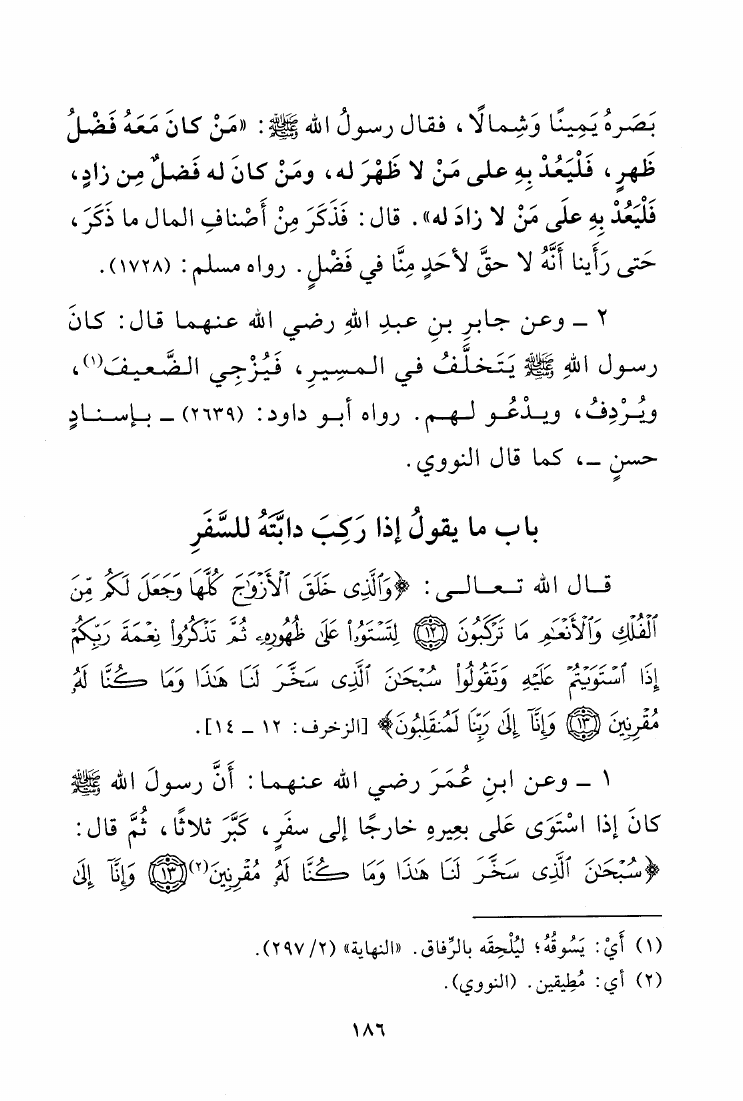 بَصَرهُ يَمِينًا وَشِمالًا، فقال رسولُ الله ﷺ: «مَنْ كانَ مَعَهُ فَضْلُ
ظَهرٍ، فَلْيَعُدْ بِهِ على مَنْ لا ظَهْرَ له، ومَنْ كانَ له فَضلٌ مِن زادٍ،
فَلْيَعُدْ بِهِ علَى مَنْ لا زادَ له». قال: فَذَكَرَ مِنْ أَصْنافِ المال ما ذَكَرَ،
حَتى رَأَينا أَنَّهُ لا حقَّ لأحَدٍ مِنَّا في فَضْلٍ. رواه مسلم: (١٧٢٨).
٢ ـ وعن جابرِ بنِ عبدِ اللهِ رضي الله عنهما قال: كانَ
رسول اللهِ ﷺ يَتَخلَّفُ في المسِيرِ، فَيُزْجِي الضَّعيفَ(١)،
ويُرْدِفُ، ويدْعُو لهم. رواه أبو داود: (٢٦٣٩) ـ بإسنادٍ
حسنٍ ـ، كما قال النووي.
باب ما يقولُ إذا رَكِبَ دابَّتَهُ للسَّفَرِ
قال الله تعالى: ﴿وَٱلَّذِى خَلَقَ ٱلْأَزْوَٰجَ كُلَّهَا وَجَعَلَ لَكُم مِّنَ
ٱلْفُلْكِ وَٱلْأَنْعَٰمِ مَا تَرْكَبُونَ ﴿١٢﴾ لِتَسْتَوُۥا۟ عَلَىٰ ظُهُورِهِۦ ثُمَّ تَذْكُرُوا۟ نِعْمَةَ رَبِّكُمْ
إِذَا ٱسْتَوَيْتُمْ عَلَيْهِ وَتَقُولُوا۟ سُبْحَٰنَ ٱلَّذِى سَخَّرَ لَنَا هَٰذَا وَمَا كُنَّا لَهُۥ
مُقْرِنِينَ ﴿١٣﴾ وَإِنَّآ إِلَىٰ رَبِّنَا لَمُنقَلِبُونَ﴾ [الزخرف: ١٢ ـ ١٤].
١ ـ وعن ابنِ عُمَرَ رضي الله عنهما: أَنَّ رسولَ الله ﷺ
كانَ إذا اسْتَوَى عَلى بعِيرهِ خارجًا إلى سفَرٍ، كَبَّرَ ثلاثًا، ثُمَّ قال:
﴿سُبْحَٰنَ ٱلَّذِى سَخَّرَ لَنَا هَٰذَا وَمَا كُنَّا لَهُۥ مُقْرِنِينَ(٢) ﴿١٣﴾ وَإِنَّآ إِلَىٰ
(١) أَيْ: يَسُوقُهُ؛ ليُلْحِقَه بالرِّفاق. «النهاية» (٢/ ٢٩٧).
(٢) أي: مُطِيقين. (النووي).
١٨٦